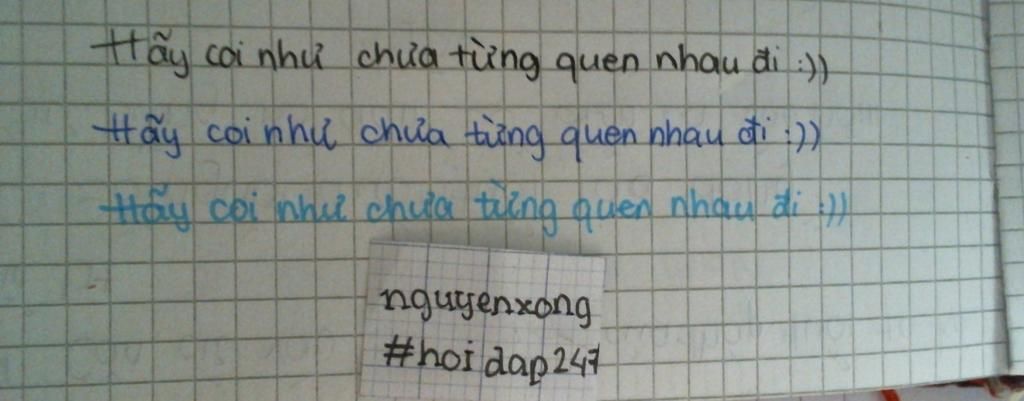 Hãy coi như chưa từng quen nhau đi :))
Hãy coi như chưa từng quen nhau đi :))
Hãy coi như chưa từng quen nhau đi :))
nguyenxong
#hoidap247